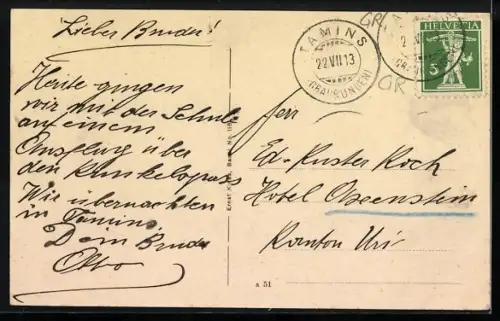 Lieber Bruder!
Heute gingen
wir mit der Schule
auf einem
Ausflug über
den Kunkelspass
Wir übernachten
in Tamins.
Dein Bruder
Otto
TAMINS
22.VII.13
(GRAUBÜNDEN)
GR
GR
HELVETIA
5
Herrn
Ed. Kuster Koch
Hotel Axenstein
Kanton Uri
a 51